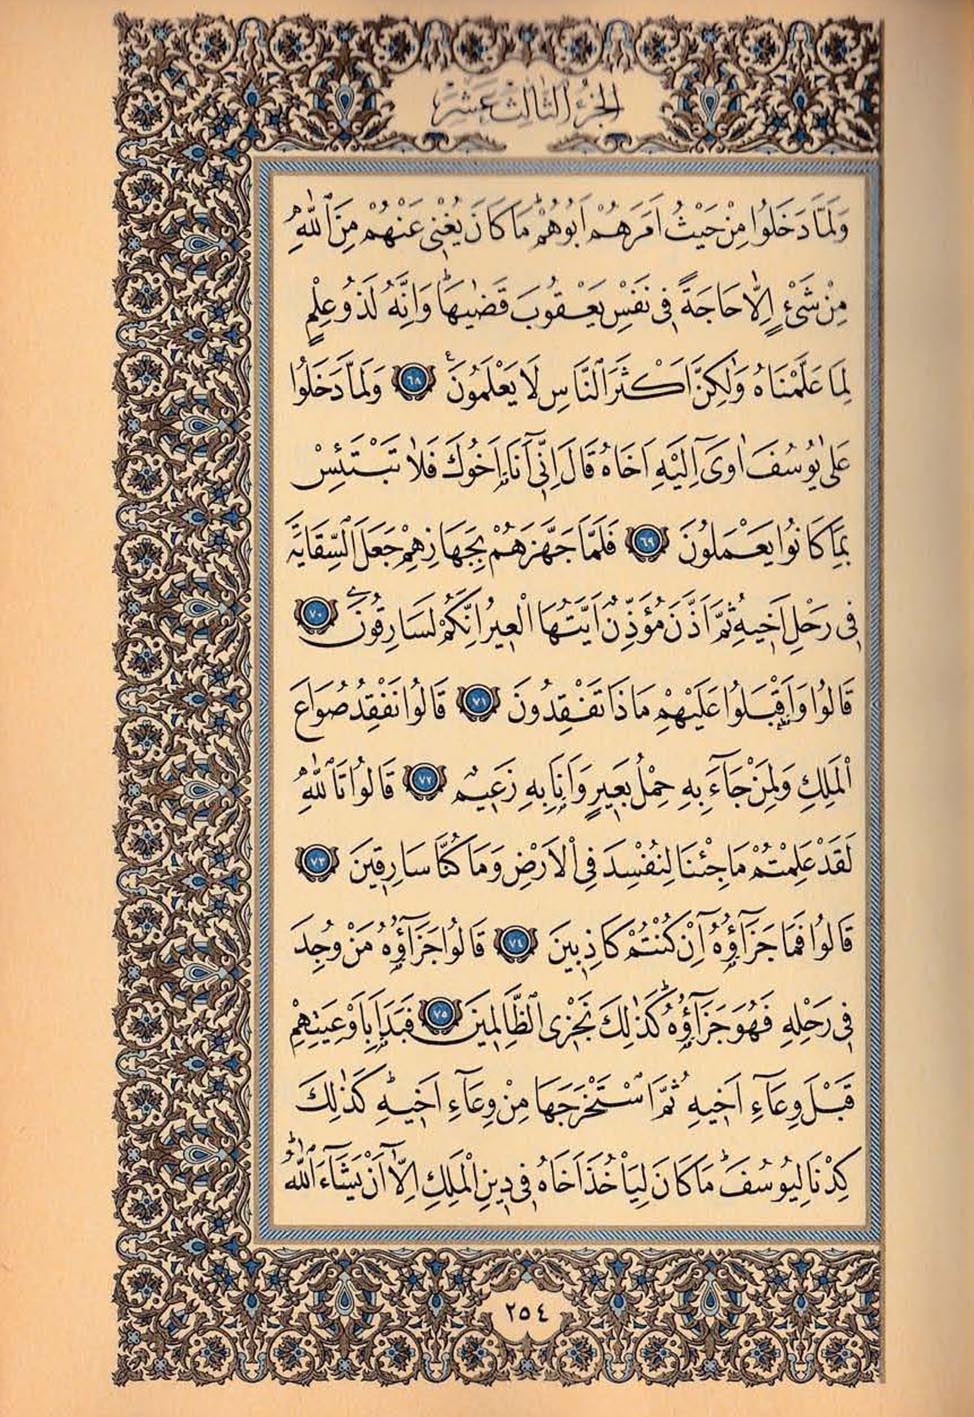 الجزء الثالث عشر
وَلَمَّا دَخَلُوا مِنْ حَيْثُ اَمَرَهُمْ اَبُوهُمْۜ مَا كَانَ يُغْنٖي عَنْهُمْ مِنَ اللّٰهِ
مِنْ شَيْءٍ اِلَّا حَاجَةً فٖي نَفْسِ يَعْقُوبَ قَضٰيهَاۜ وَاِنَّهُ لَذُو عِلْمٍ
لِمَا عَلَّمْنَاهُ وَلٰكِنَّ اَكْثَرَ النَّاسِ لَا يَعْلَمُونَ ٦٨ وَلَمَّا دَخَلُوا
عَلٰى يُوسُفَ اٰوٰٓى اِلَيْهِ اَخَاهُ قَالَ اِنّٖٓي اَنَا۬ اَخُوكَ فَلَا تَبْتَئِسْ
بِمَا كَانُوا يَعْمَلُونَ ٦٩ فَلَمَّا جَهَّزَهُمْ بِجَهَازِهِمْ جَعَلَ السِّقَايَةَ
فٖي رَحْلِ اَخٖيهِ ثُمَّ اَذَّنَ مُؤَذِّنٌ اَيَّتُهَا الْعٖيرُ اِنَّكُمْ لَسَارِقُونَ ٧٠
قَالُوا وَاَقْبَلُوا عَلَيْهِمْ مَاذَا تَفْقِدُونَ ٧١ قَالُوا نَفْقِدُ صُوَاعَ
الْمَلِكِ وَلِمَنْ جَٓاءَ بِهٖ حِمْلُ بَعٖيرٍ وَاَنَا۬ بِهٖ زَعٖيمٌ ٧٢ قَالُوا تَاللّٰهِ
لَقَدْ عَلِمْتُمْ مَا جِئْنَا لِنُفْسِدَ فِي الْاَرْضِ وَمَا كُنَّا سَارِقٖينَ ٧٣
قَالُوا فَمَا جَزَٓاؤُ۬هُٓ اِنْ كُنْتُمْ كَاذِبٖينَ ٧٤ قَالُوا جَزَٓاؤُ۬هُ مَنْ وُجِدَ
فٖي رَحْلِهٖ فَهُوَ جَزَٓاؤُ۬هُۜ كَذٰلِكَ نَجْزِي الظَّالِمٖينَ ٧٥ فَبَدَاَ بِاَوْعِيَتِهِمْ
قَبْلَ وِعَٓاءِ اَخٖيهِ ثُمَّ اسْتَخْرَجَهَا مِنْ وِعَٓاءِ اَخٖيهِۜ كَذٰلِكَ
كِدْنَا لِيُوسُفَۜ مَا كَانَ لِيَأْخُذَ اَخَاهُ فٖي دٖينِ الْمَلِكِ اِلَّٓا اَنْ يَشَٓاءَ اللّٰهُۜ
٢٥٤